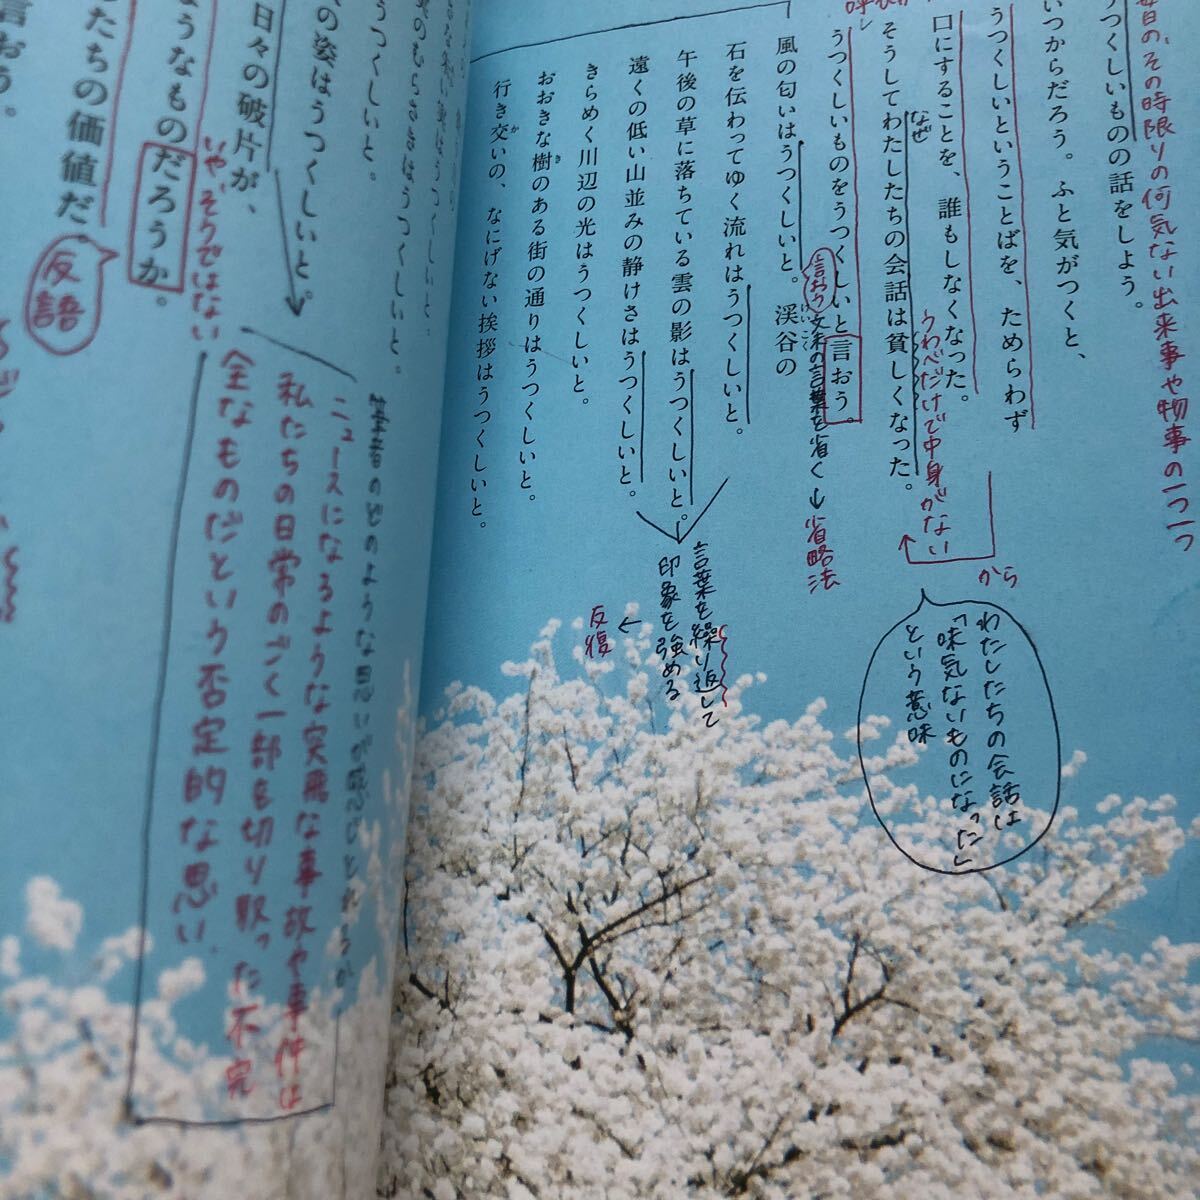 毎日の、その時限りの何気ない出来事や物事の一つ一つ
うつくしいものの話をしよう。
いつからだろう。ふと気がつくと、
うつくしいということばを、ためらわず
口にすることを、誰もしなくなった。
なぜ
そうしてわたしたちの会話は貧しくなった。
うわべだけで中身がない
から
わたしたちの会話は
「味気ないものになった」
という意味
うつくしいものをうつくしいと言おう。
言おう
文末の言葉を省く→省略法
風の匂いはうつくしいと。渓谷の
けいこく
石を伝わってゆく流れはうつくしいと。
午後の草に落ちている雲の影はうつくしいと。
遠くの低い山並みの静けさはうつくしいと。
言葉を繰り返して
印象を強める
反復
きらめく川辺の光はうつくしいと。
おおきな樹のある街の通りはうつくしいと。
き
行き交いの、なにげない挨拶はうつくしいと。
か
うつくしいと。
のむらさきはうつくしいと。
うつくしいと。
の姿はうつくしいと。
日々の破片が、
うなものだろうか。
いや、そうではない
反語
たちの価値だ。
言おう。
筆者のどのような思いが感じとれるか
ニュースになるような突飛な事故や事件は
私たちの日常のごく一部を切り取った不完
全なものだという否定的な思い。